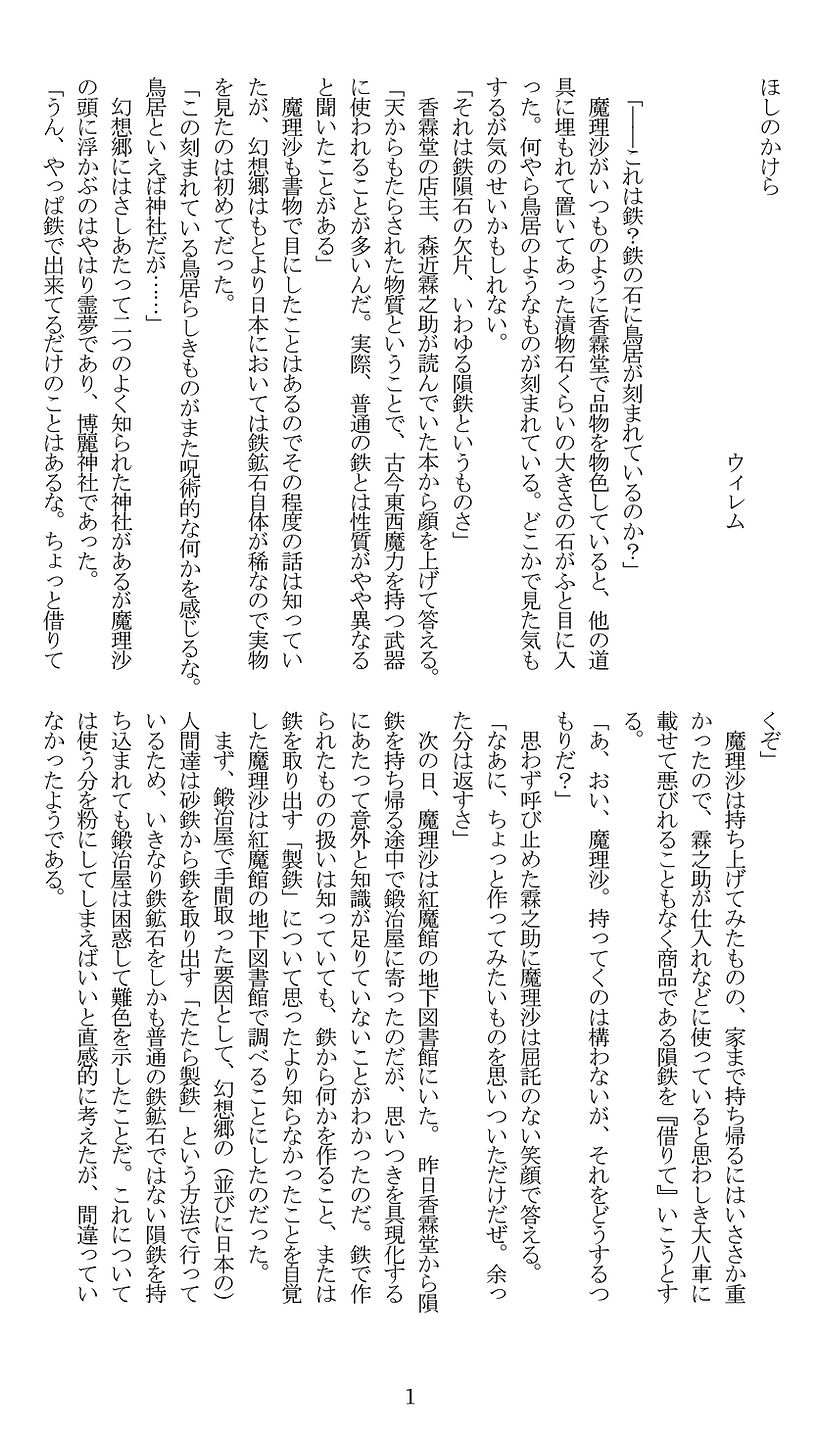 ほしのかけら
ウィレム
「――これは鉄？鉄の石に鳥居が刻まれているのか？」
魔理沙がいつものように香霖堂で品物を物色していると、他の道
具に埋もれて置いてあった漬物石くらいの大きさの石がふと目に入
った。何やら鳥居のようなものが刻まれている。どこかで見た気も
するが気のせいかもしれない。
「それは鉄隕石の欠片、いわゆる隕鉄というものさ」
香霖堂の店主、森近霖之助が読んでいた本から顔を上げて答える。
「天からもたらされた物質ということで、古今東西魔力を持つ武器
に使われることが多いんだ。実際、普通の鉄とは性質がやや異なる
と聞いたことがある」
魔理沙も書物で目にしたことはあるのでその程度の話は知ってい
たが、幻想郷はもとより日本においては鉄鉱石自体が稀なので実物
を見たのは初めてだった。
「この刻まれている鳥居らしきものがまた呪術的な何かを感じるな。
鳥居といえば神社だが……」
幻想郷にはさしあたって二つのよく知られた神社があるが魔理沙
の頭に浮かぶのはやはり霊夢であり、博麗神社であった。
「うん、やっぱ鉄で出来てるだけのことはあるな。ちょっと借りて
くぞ」
魔理沙は持ち上げてみたものの、家まで持ち帰るにはいささか重
かったので、霖之助が仕入れなどに使っていると思わしき大八車に
載せて悪びれることもなく商品である隕鉄を『借りて』いこうとす
る。
「あ、おい、魔理沙。持ってくのは構わないが、それをどうするつ
もりだ？」
思わず呼び止めた霖之助に魔理沙は屈託のない笑顔で答える。
「なあに、ちょっと作ってみたいものを思いついただけだぜ。余っ
た分は返すさ」
次の日、魔理沙は紅魔館の地下図書館にいた。　昨日香霖堂から隕
鉄を持ち帰る途中で鍛冶屋に寄ったのだが、思いつきを具現化する
にあたって意外と知識が足りていないことがわかったのだ。鉄で作
られたものの扱いは知っていても、鉄から何かを作ること、または
鉄を取り出す「製鉄」について思ったより知らなかったことを自覚
した魔理沙は紅魔館の地下図書館で調べることにしたのだった。
まず、鍛冶屋で手間取った要因として、幻想郷の（並びに日本の）
人間達は砂鉄から鉄を取り出す「たたら製鉄」という方法で行って
いるため、いきなり鉄鉱石をしかも普通の鉄鉱石ではない隕鉄を持
ち込まれても鍛冶屋は困惑して難色を示したことだ。これについて
は使う分を粉にしてしまえばいいと直感的に考えたが、間違ってい
なかったようである。
1